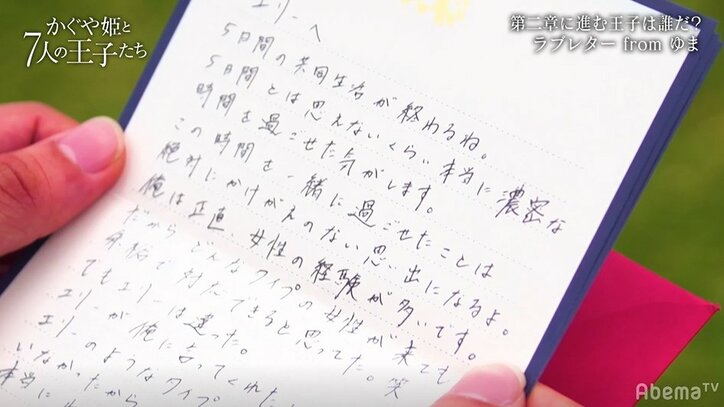 かぐや姫と
7人の王子たち
第二章に進む王子は誰だ?
ラブレター from ゆま
エリーへ
5日間の共同生活が終わるね。
5日間とは思えないくらい本当に濃密な
時間を過ごせた気がします。
この時間を一緒に過ごせたことは
絶対にかけがえのない思い出になるよ。
俺は正直、女性の経験が多いです。
だからどんなタイプの女性が来ても
対応できると思ってた。笑
でもエリーは違った。
エリーが俺に言ってくれた
エリーのようなタイプ
いなかったから
本当に
AbemaTV